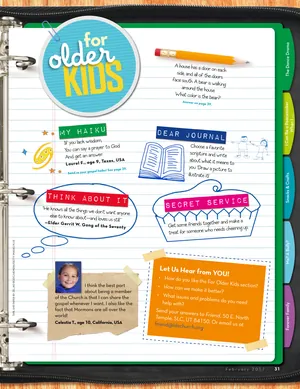 for
older
KIDS
A house has a door on each
side, and all of the doors
face south. A bear is walking
around the house.
What color is the bear?
MY HAIKU
If you lack wisdom,
You can say a prayer to God
And get an answer.
Laurel E., age 9, Texas, USA
DEAR JOURNAL
Choose a favorite
scripture and write
about what it means to
you. Draw a picture to
illustrate it!
THINK ABOUT IT
"He knows all the things we don't want anyone
else to know about—and loves us still."
—Elder Gerrit W. Gong of the Seventy
SECRET SERVICE
Get some friends together and make a
treat for someone who needs cheering up.
I think the best part
about being a member
of the Church is that I can share the
gospel whenever I want. I also like the
fact that Mormons are all over the
world!
Celeste T., age 10, California, USA
Let Us Hear from YOU!
How do you like the For Older Kids section?
How can we make it better?
What issues and problems do you need
help with?
Send your answers to Friend, 50 E. North
Temple, SLC, UT 84150. Or email us at
friend@ldschurch.org.
Parents/Family
February 2017 31